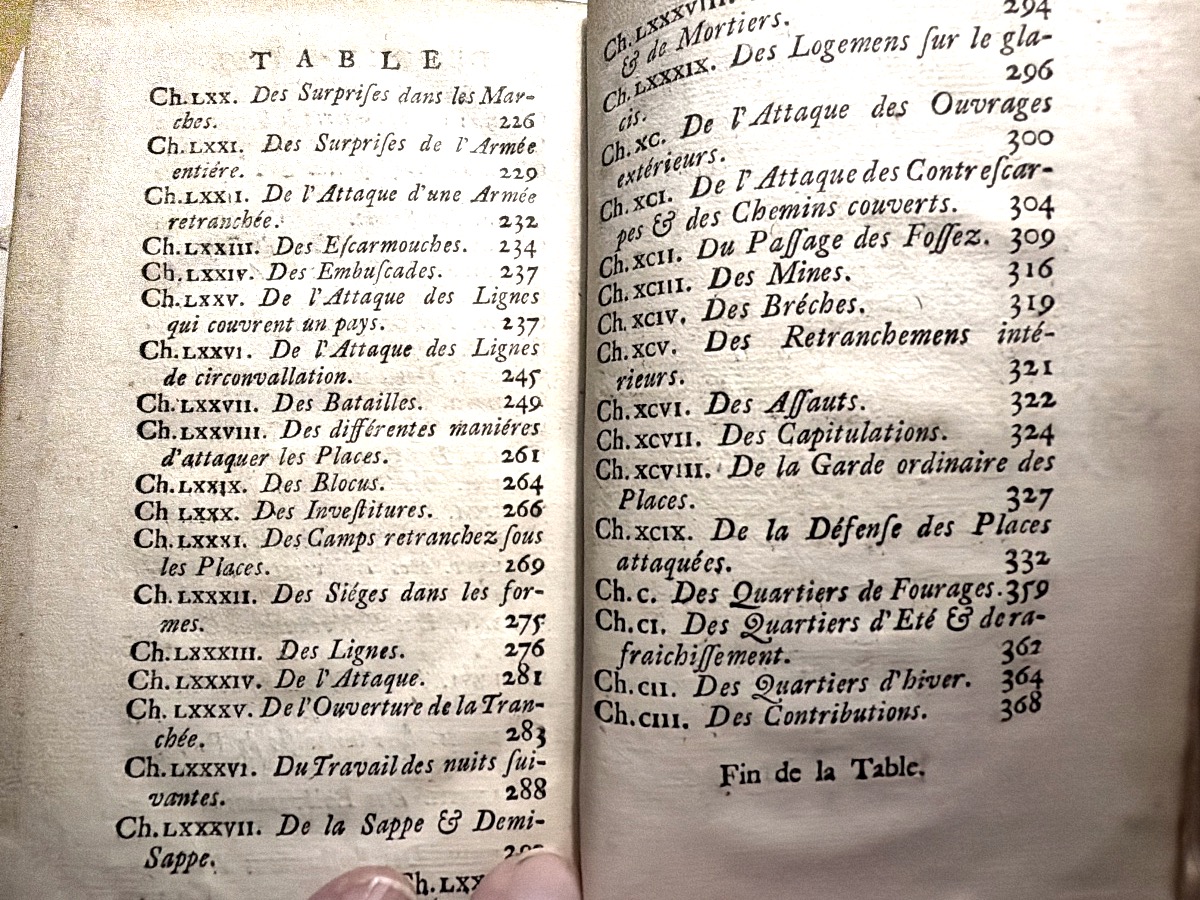 TABLE
Ch. LXX. Des Surpriſes dans les Mar-
ches. 226
Ch. LXXI. Des Surpriſes de l'Armée
entiére. 229
Ch. LXXII. De l'Attaque d'une Armée
retranchée. 232
Ch. LXXIII. Des Eſcarmouches. 234
Ch. LXXIV. Des Embuſcades. 237
Ch. LXXV. De l'Attaque des Lignes
qui couvrent un pays. 237
Ch. LXXVI. De l'Attaque des Lignes
de circonvallation. 245
Ch. LXXVII. Des Batailles. 249
Ch. LXXVIII. Des différentes maniéres
d'attaquer les Places. 261
Ch. LXXIX. Des Blocus. 264
Ch LXXX. Des Inveſtitures. 266
Ch. LXXXI. Des Camps retranchez ſous
les Places. 269
Ch. LXXXII. Des Siéges dans les for-
mes. 275
Ch. LXXXIII. Des Lignes. 276
Ch. LXXXIV. De l'Attaque. 281
Ch. LXXXV. De l'Ouverture de la Tran-
chée. 283
Ch. LXXXVI. Du Travail des nuits ſui-
vantes. 288
Ch. LXXXVII. De la Sappe & Demi-
Sappe.
Ch. LXXXVIII.
& de Mortiers. 294
Ch. LXXXIX. Des Logemens ſur le gla-
cis. 296
Ch. XC. De l'Attaque des Ouvrages
extérieurs. 300
Ch. XCI. De l'Attaque des Contreſcar-
pes & des Chemins couverts. 304
Ch. XCII. Du Paſſage des Foſſez. 309
Ch. XCIII. Des Mines. 316
Ch. XCIV. Des Bréches. 319
Ch. XCV. Des Retranchemens inté-
rieurs. 321
Ch. XCVI. Des Aſſauts. 322
Ch. XCVII. Des Capitulations. 324
Ch. XCVIII. De la Garde ordinaire des
Places. 327
Ch. XCIX. De la Défenſe des Places
attaquées. 332
Ch. C. Des Quartiers de Fourages. 359
Ch. CI. Des Quartiers d'Eté & de ra-
fraichiſſement. 362
Ch. CII. Des Quartiers d'hiver. 364
Ch. CIII. Des Contributions. 368
Fin de la Table.